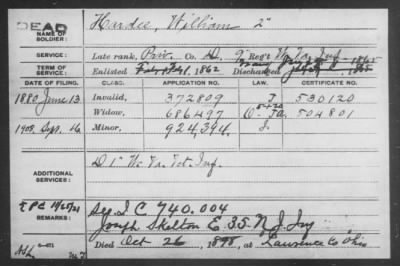 DEAD
NAME OF SOLDIER:
Hardie, William 2"
SERVICE:
Late rank, Priv. Co. D, 9" Reg't W. Va. Inf.
TERM OF SERVICE:
Enlisted 1862 Discharged
DATE OF FILING. CLASS. APPLICATION NO. LAW. CERTIFICATE NO.
1880 June 13 Invalid, 372809 J. 530120
Widow, 686497 504801
1908, Sep. 16 Minor, 924,394 J.
ADDITIONAL SERVICES:
D 1" W. Va. Vet. Inf.
REMARKS:
See I C 740.004
Joseph Skelton E 35 N J Inf
Died Oct 26, , at Lawrence Co Ohio